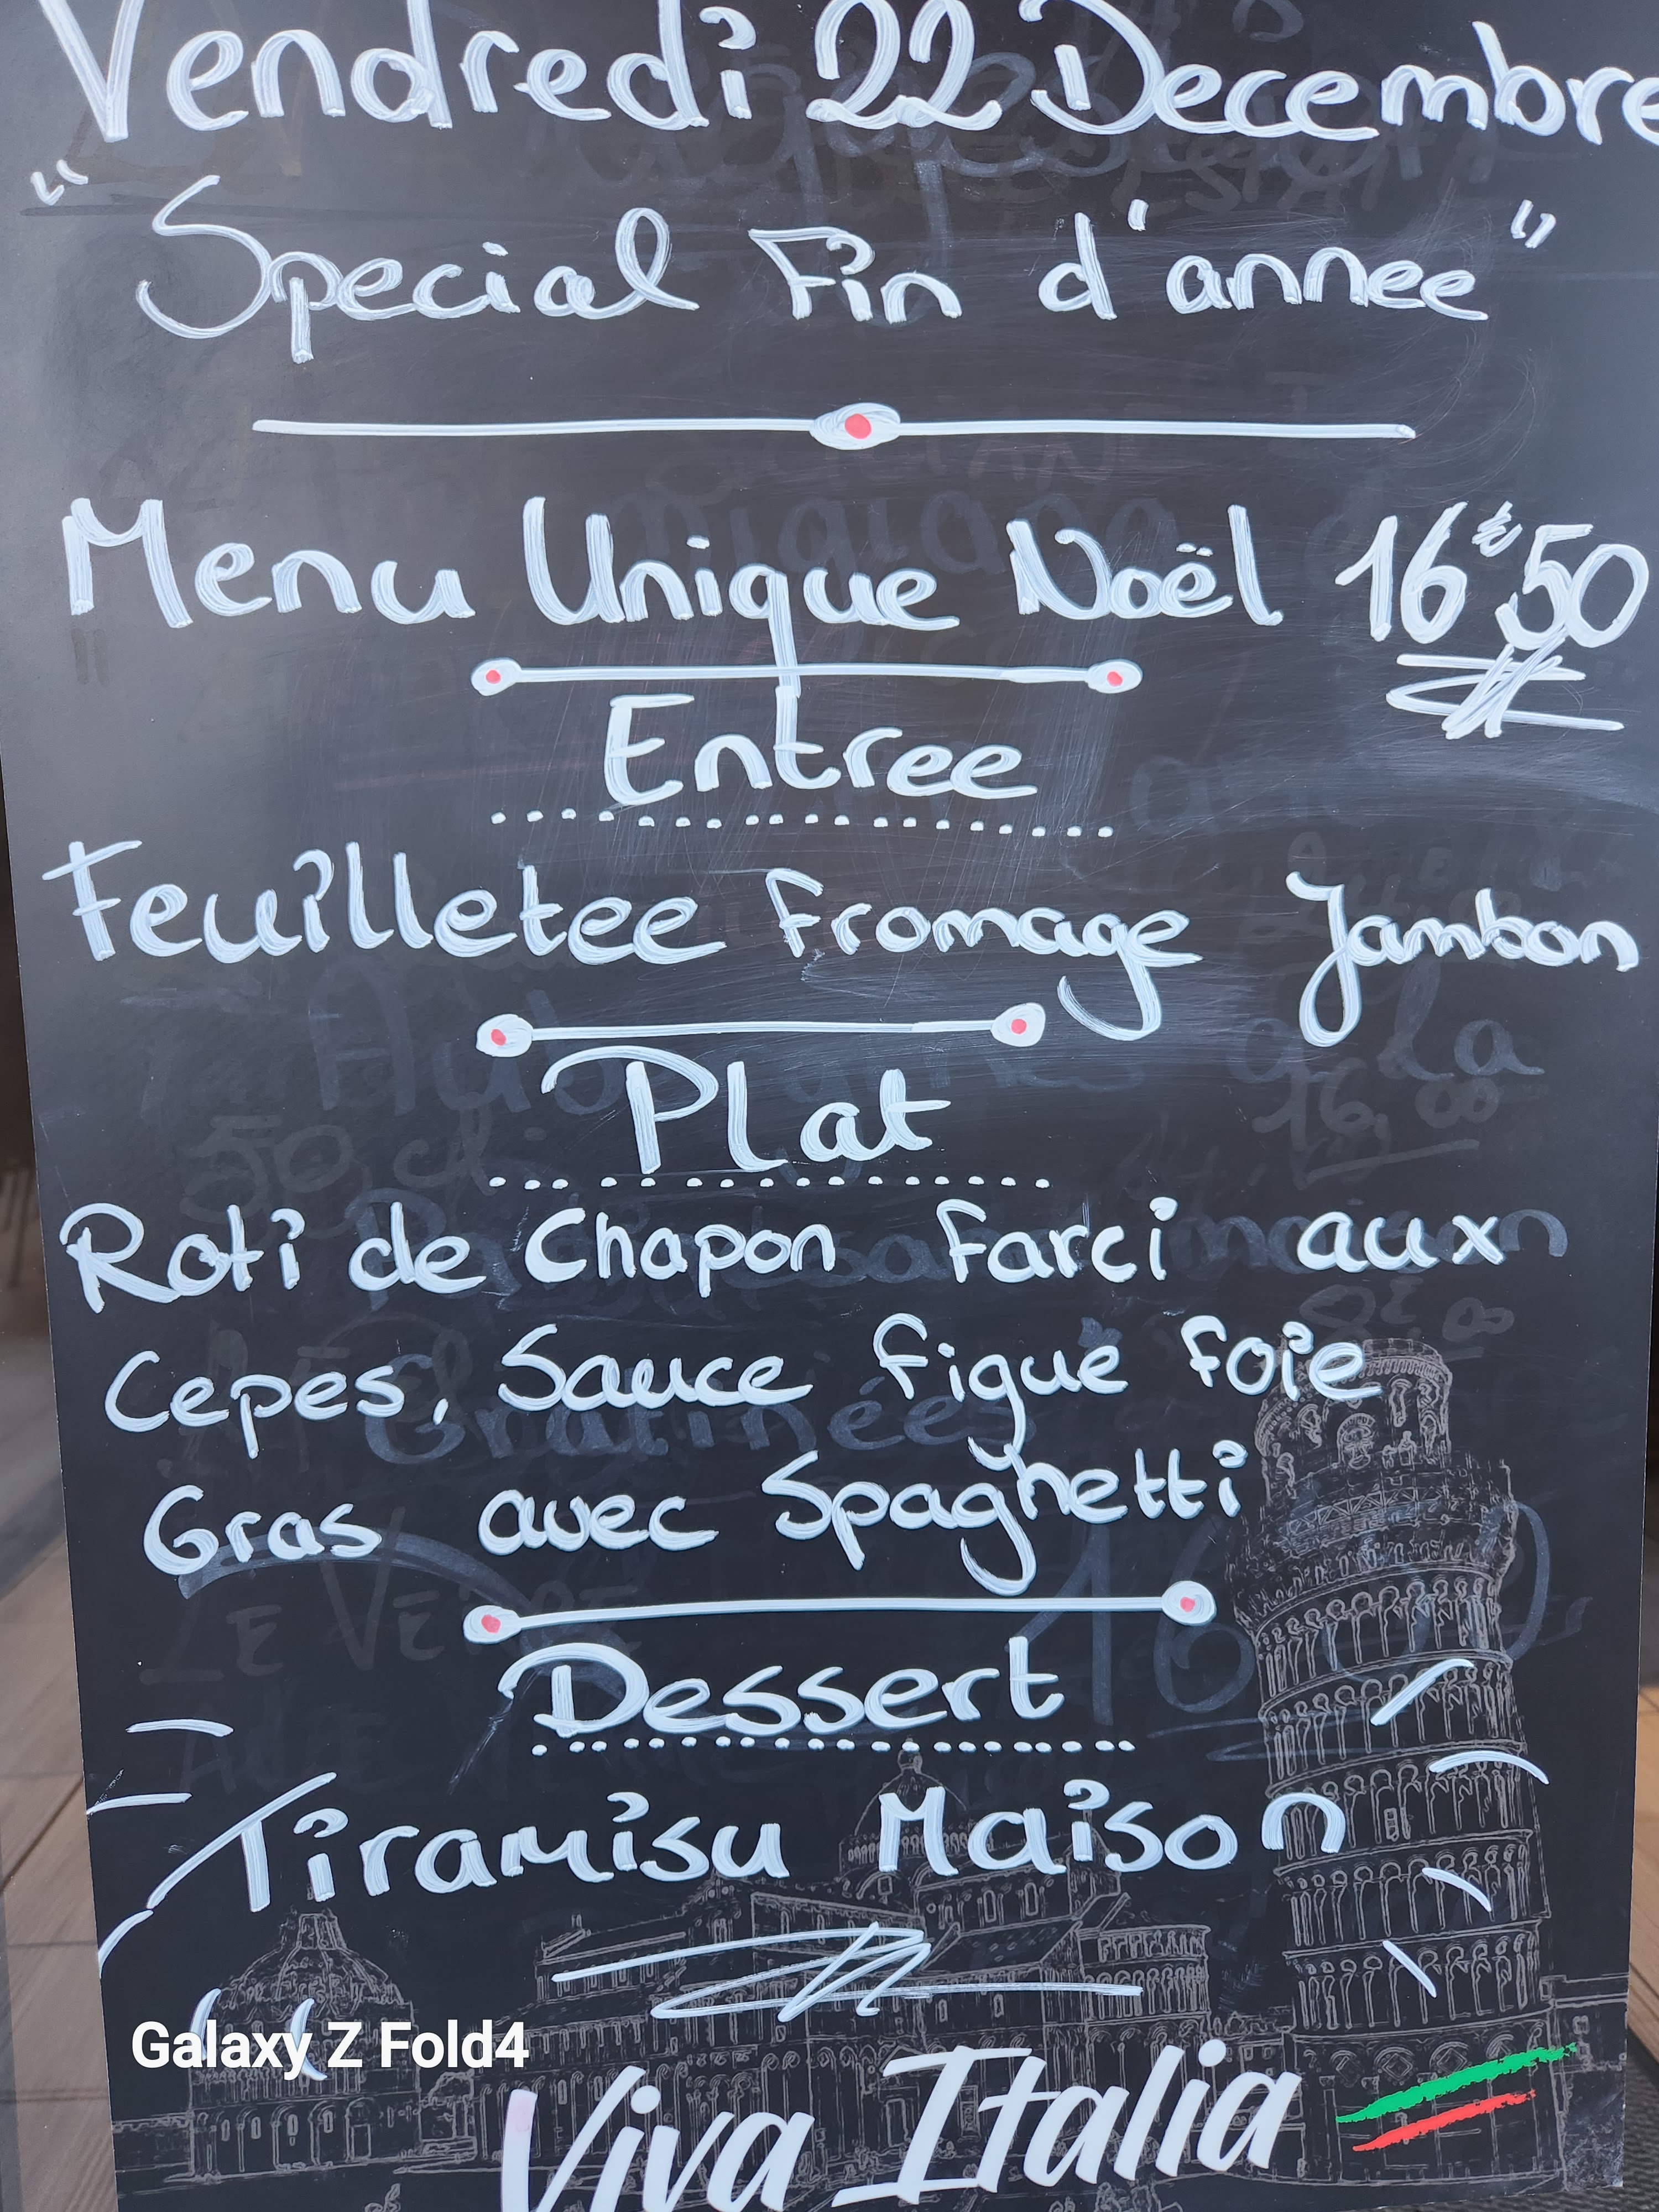 Vendredi 22 Decembre
"Special Fin d'annee"
Menu Unique Noël 16€,50
Entree
Feuilletee Fromage Jambon
Plat
Roti de Chapon Farci aux
Cepes, Sauce figue foie
Gras avec Spaghetti
Dessert
Tiramisu Maison
Galaxy Z Fold4
Viva Italia